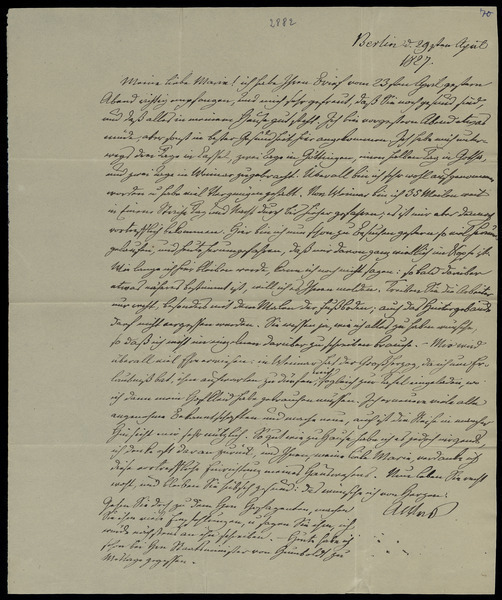 2882
70
Berlin d. 29sten April
1827.
Meine liebe Marie! ich habe Ihren Brief vom 23sten April gestern
Abend richtig empfangen, und mich sehr gefreut, daß Sie noch gesund sind,
und daß alles in meinem Hause gut steht. Ich bin vorgestern Abend etwas
müde, aber sonst in bester Gesundheit hier angekommen. Ich habe mich unter-
wegs drei Tage in Cassel, zwei Tage in Göttingen, einen halben Tag in Gotha,
und zwei Tage in Weimar zugebracht. Überall bin ich sehr wohl aufgenommen
worden u. habe viel Vergnügen gehabt. Von Weimar bin ich 35 Meilen weit
in Einem Strich Tag und Nacht durch bis hieher gefahren; es ist mir aber
vortrefflich bekommen. Hier bin ich nun schon zu Besuchen gestern so viel herum
gelaufen, und herumgefahren, daß mir davon ganz wirblich im Kopfe ist.
Wie lange ich hier bleiben werde, kann ich noch nicht sagen: so bald darüber
etwas näheres bestimmt ist, will ich es Ihnen melden. Treiben Sie die Arbeiter
nur recht, besonders mit dem Malen der Fußböden; auch das Hintergebäude
darf nicht vergessen werden. Sie wissen ja, wie ich alles zu haben wünsche,
so daß ich nicht weitläuftig darüber zu schreiben brauche. – Mir wird
überall viel Ehre erwiesen: in Weimar hat der Großherzog, da ich um Er-
laubniß bat, ihm aufwarten zu dürfen, mich sogleich zur Tafel eingeladen, wo
ich denn mein Hofkleid habe gebrauchen müssen. Ich erneuere viele alte
angenehme Bekanntschaften und mache neue, auch ist die Reise in mancher
Hinsicht mir sehr nützlich. So gut wie zu Hause habe ich es jedoch nirgends,
ich denke oft daran zurück, und Ihnen, meine liebe Marie, verdanke ich
diese vortreffliche Einrichtung meines Hauswesens. Nun leben Sie recht
wohl, und bleiben Sie hübsch gesund: das wünsche ich von Herzen.
Gehen Sie doch zu dem Hrn machen
Sie ihm viele Empfehlungen, u. sagen Sie ihm, ich
würde nächstens an ihn schreiben. – Heute habe ich
schon bei Hrn Staatsminister von Humboldt zu
Mittag gegessen.